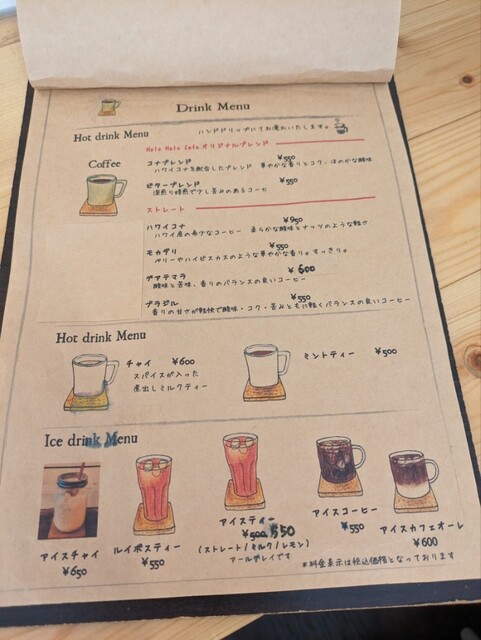 Drink Menu
Hot drink Menu
ハンドドリップにてお淹れいたします。
Hola Hola Cafe オリジナルブレンド
Coffee
コナブレンド ¥550
ハワイコナを配合したブレンド 華やかな香りとコク、ほのかな酸味
ビターブレンド ¥550
深煎り焙煎で少し苦みのあるコーヒー
ストレート
ハワイコナ ¥950
ハワイ産の希少なコーヒー 柔らかな酸味とナッツのような軽さ
モカダリ ¥550
ベリーやハイビスカスのような華やかな香り。すっきり。
グアテマラ ¥600
酸味と苦味、香りのバランスの良いコーヒー
ブラジル ¥550
香りの甘さが軽快で酸味・コク・苦みともに軽くバランスの良いコーヒー
Hot drink Menu
チャイ ¥600
スパイスが入った
煮出しミルクティー
ミントティー ¥500
Ice drink Menu
アイスチャイ
¥650
ルイボスティー
¥550
アイスティー
¥500 550
(ストレート/ミルク/レモン)
アールグレイです
アイスコーヒー
¥550
アイスカフェオーレ
¥600
*料金表示は税込価格となっております